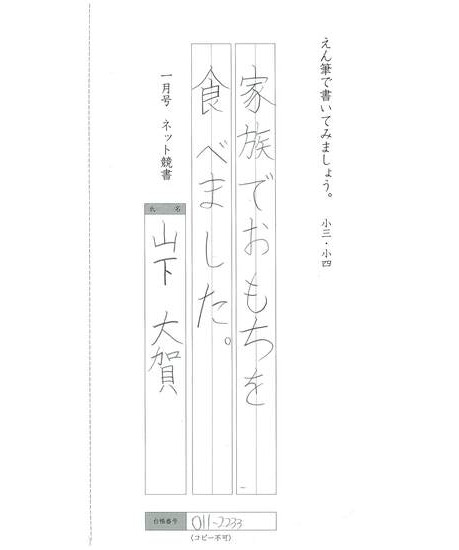 えん筆で書いてみましょう。 小三・小四
家族でおもちを
食べました。
一月号 ネット競書
氏 名
山下 大賀
台帳番号 011-2233
(コピー不可)